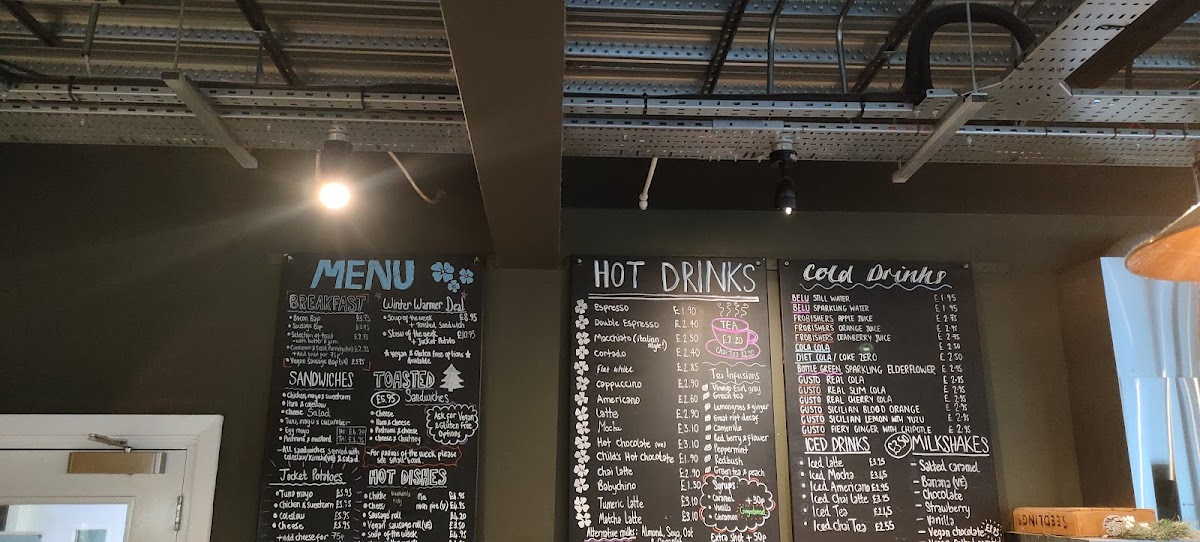 MENU
BREAKFAST
• Bacon Bap £3.95
• Sausage Bap £3.95
• Selection of toast
with butter & jam
+ Add fruit for 75p
• Vegan Sausage Bap (ve) £3.95
Winter Warmer Deal
• Soup of the week £8.95
+ Toasted Sandwich
• Stew of the week £10.95
+ Jacket Potato
* Vegan & Gluten free options *
Available
SANDWICHES
• Chicken, mayo & sweetcorn
• Ham & coleslaw
• Cheese Salad
• Tuna, mayo & cucumber
• Egg mayo
• Pastrami & mustard
• All sandwiches served with
coleslaw/kimchi(ve) & salad
TOASTED
Sandwiches
£6.95
• Cheese
• Ham & cheese
• Pastrami & cheese
• Cheese & chutney
Ask for Vegan
& Gluten Free
Options
• For paninis of the week please
see small board
Jacket Potatoes
• Tuna mayo £5.95
• Chicken & sweetcorn £5.95
• Coleslaw £5.95
• Cheese £5.95
+ Add cheese for 75p
HOT DISHES
• Sausage roll £4.20
• Vegan sausage roll (ve) £3.50
• Soup of the week
HOT DRINKS
Espresso £1.90
Double Espresso £2.40
Macchiato (italian style!) £2.50
Cortado £2.40
Flat white £2.85
Cappuccino £2.90
Americano £2.60
Latte £2.90
Mocha £3.10
Hot Chocolate (ve) £3.10
Childs Hot chocolate £1.90
Chai latte £2.90
Babychino £1.30
Tumeric Latte £3.10
Matcha Latte £3.10
Alternative milks: Almond, Soya, Oat
& Coconut
TEA
£2.20
Chai Tea £2.50
Tea Infusions
Vintage Earl grey
Green tea
Lemongrass & ginger
Great rift decaf
Camomile
Red berry & flower
Peppermint
Redbush
Green tea & peach
Syrups:
• Caramel
• Vanilla
• Cinnamon
+50p
Extra shot +50p
Cold Drinks
BELU STILL WATER £1.95
BELU SPARKLING WATER £1.95
FROBISHERS APPLE JUICE £2.95
FROBISHERS ORANGE JUICE £2.95
FROBISHERS CRANBERRY JUICE £2.95
COLA COLA £2.50
DIET COLA/ COKE ZERO £2.50
BOTTLE GREEN SPARKLING ELDERFLOWER £2.95
GUSTO REAL COLA £2.95
GUSTO REAL SLIM COLA £2.95
GUSTO REAL CHERRY COLA £2.95
GUSTO SICILIAN BLOOD ORANGE £2.95
GUSTO SICILIAN LEMON WITH YUZU £2.95
GUSTO FIERY GINGER WITH CHIPOTLE £2.95
ICED DRINKS
• Iced latte £3.25
• Iced Mocha £3.45
• Iced Americano £2.95
• Iced Chai latte £3.25
• Iced Tea £2.45
• Iced Chai Tea £2.55
£3.50 MILKSHAKES
- Salted caramel
- Banana (VE)
- Chocolate
- Strawberry
- Vanilla
- Vegan chocolate
SEEDLINGS